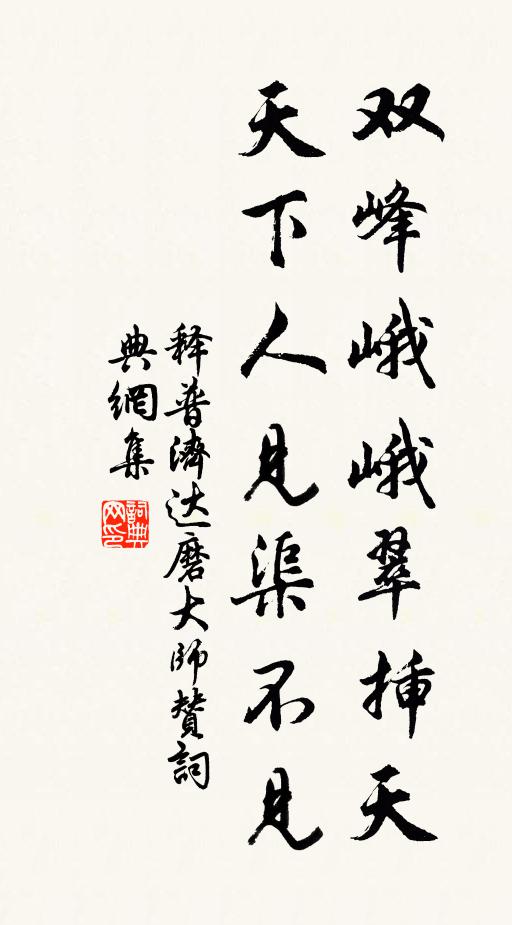 双峰峨峨翠插天
天下人见渠不见
释普濟达磨大师赞詞
典網集
詞典网印